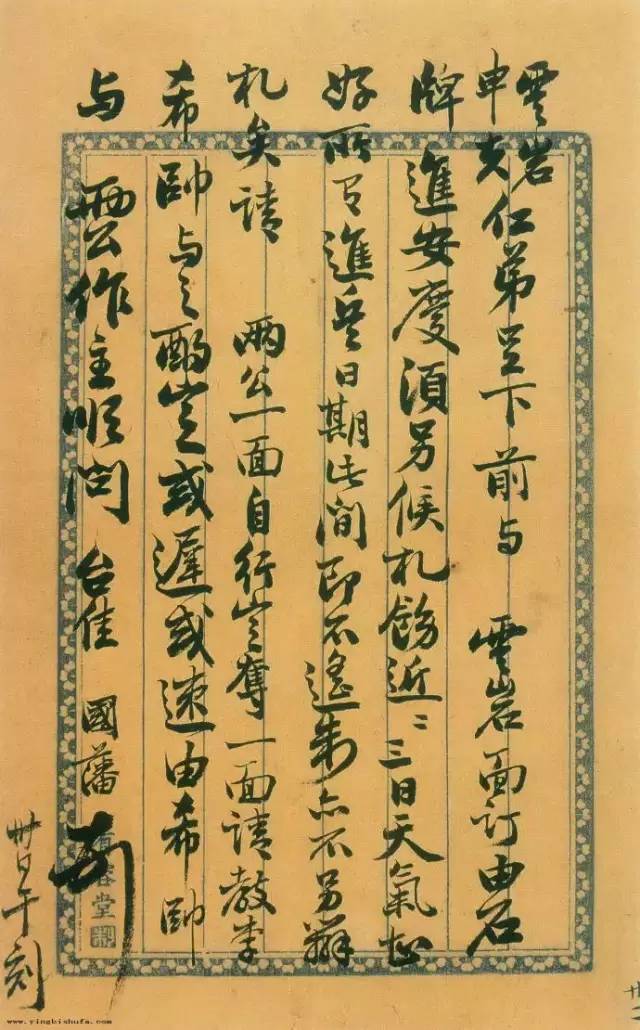 雲岩
申夫仁弟足下前与 雲岩面訂由石
牌進安慶須另候札飭近二三日天氣甚
好所有進兵日期此間即不遙制亦不另辦
札矣請 兩公一面自行定奪一面請教李
希帥与之酌定或遲或速由希帥
与 雲公作主順問 台佳 國藩
卅日午刻
堂
www.yingbishufa.com